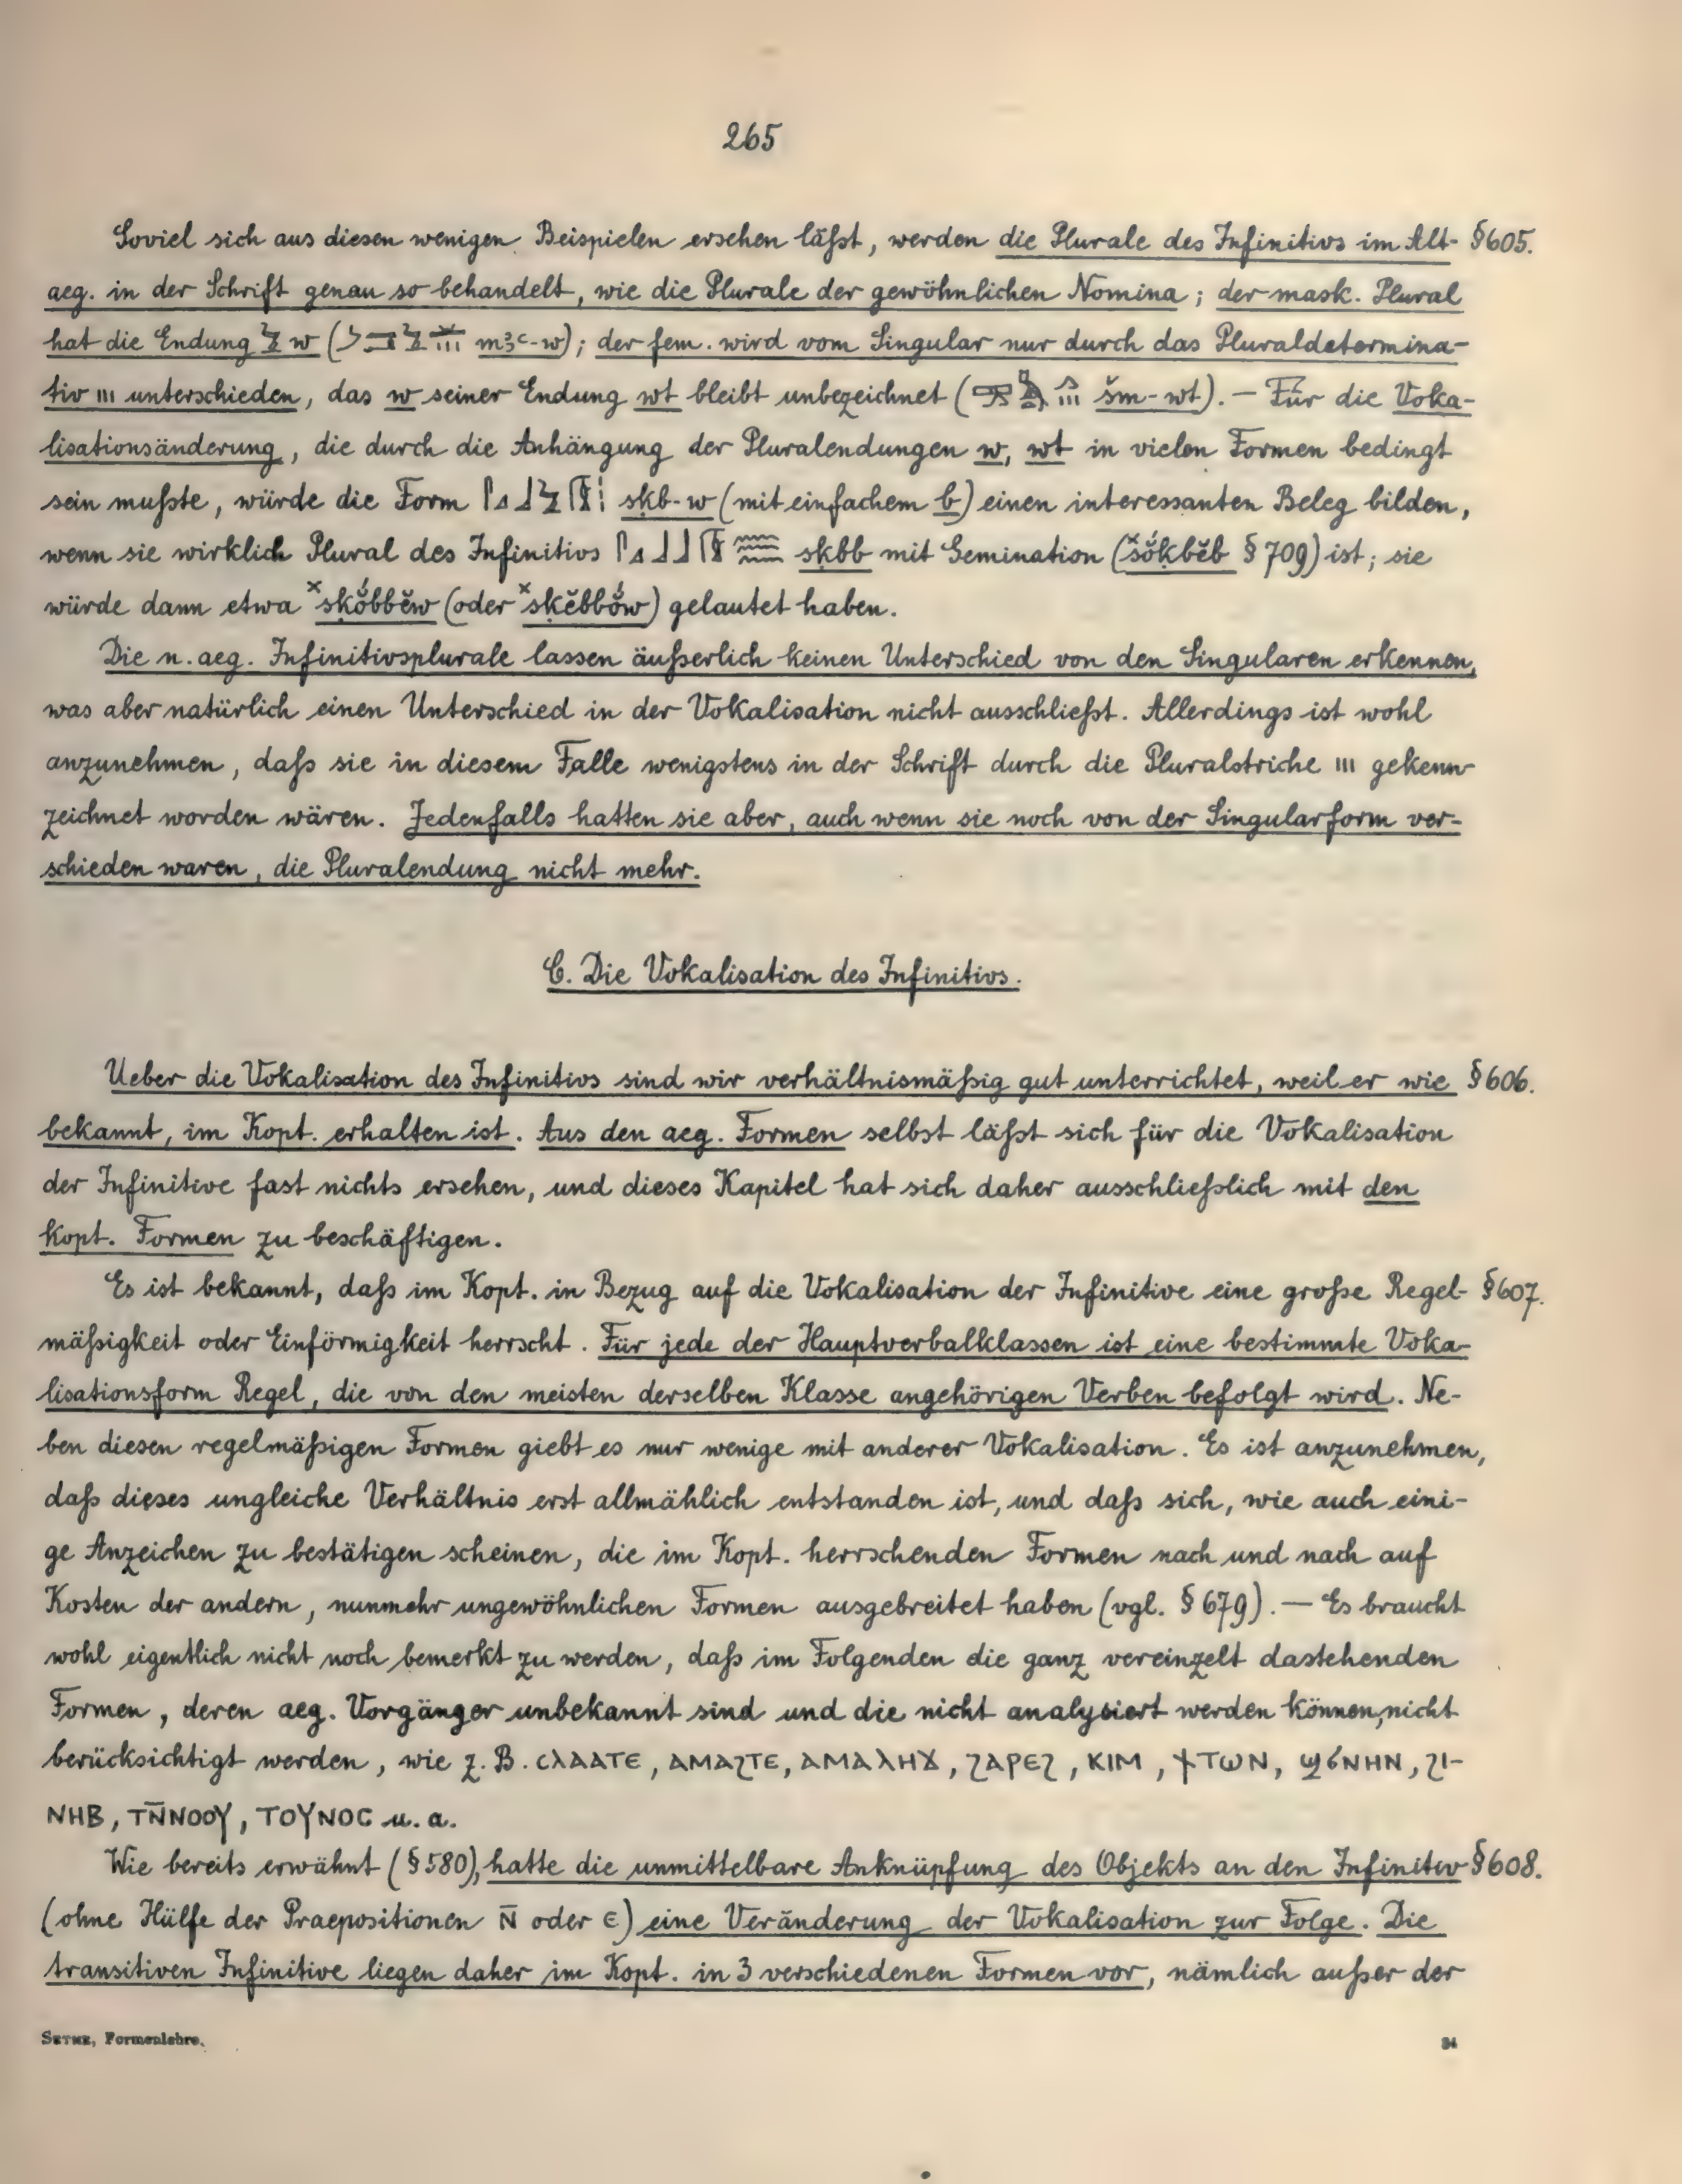 265
Soviel sich aus diesen wenigen Beispielen ersehen läßt, werden die Plurale des Infinitivs im Alt- §605.
aeg. in der Schrift genau so behandelt, wie die Plurale der gewöhnlichen Nomina; der mask. Plural
hat die Endung w ( mꜣꜥ-w); der fem. wird vom Singular nur durch das Pluraldetermina-
tiv ııı unterschieden, das w seiner Endung wt bleibt unbezeichnet ( šm-wt). — Für die Voka-
lisationsänderung, die durch die Anhängung der Pluralendungen w, wt in vielen Formen bedingt
sein mußte, würde die Form sḳb-w (mit einfachem b) einen interessanten Beleg bilden,
wenn sie wirklich Plural des Infinitivs sḳbb mit Gemination (ˣsŏ́ḳbĕb § 709) ist; sie
würde dann etwa ˣsḳŏ́bbĕw (oder ˣsḳĕbbŏ́w) gelautet haben.
Die n. aeg. Infinitivsplurale lassen äußerlich keinen Unterschied von den Singularen erkennen,
was aber natürlich einen Unterschied in der Vokalisation nicht ausschließt. Allerdings ist wohl
anzunehmen, daß sie in diesem Falle wenigstens in der Schrift durch die Pluralstriche ııı gekenn-
zeichnet worden wären. Jedenfalls hatten sie aber, auch wenn sie noch von der Singularform ver-
schieden waren, die Pluralendung nicht mehr.
C. Die Vokalisation des Infinitivs.
Ueber die Vokalisation des Infinitivs sind wir verhältnismäßig gut unterrichtet, weil er wie §606.
bekannt, im Kopt. erhalten ist. Aus den aeg. Formen selbst läßt sich für die Vokalisation
der Infinitive fast nichts ersehen, und dieses Kapitel hat sich daher ausschließlich mit den
kopt. Formen zu beschäftigen.
Es ist bekannt, daß im Kopt. in Bezug auf die Vokalisation der Infinitive eine große Regel- §607.
mäßigkeit oder Einförmigkeit herrscht. Für jede der Hauptverbalklassen ist eine bestimmte Voka-
lisationsform Regel, die von den meisten derselben Klasse angehörigen Verben befolgt wird. Ne-
ben diesen regelmäßigen Formen giebt es nur wenige mit anderer Vokalisation. Es ist anzunehmen,
daß dieses ungleiche Verhältnis erst allmählich entstanden ist, und daß sich, wie auch eini-
ge Anzeichen zu bestätigen scheinen, die im Kopt. herrschenden Formen nach und nach auf
Kosten der andern, nunmehr ungewöhnlichen Formen ausgebreitet haben (vgl. § 679). — Es braucht
wohl eigentlich nicht noch bemerkt zu werden, daß im Folgenden die ganz vereinzelt dastehenden
Formen, deren aeg. Vorgänger unbekannt sind und die nicht analysiert werden können, nicht
berücksichtigt werden, wie z. B. ⲥⲗⲁⲁⲧⲉ, ⲁⲙⲁϩⲧⲉ, ⲁⲙⲁⲗⲏϫ, ϩⲁⲣⲉϩ, ⲕⲓⲙ, ϯⲧⲱⲛ, ϣϭⲛⲏⲛ, ϩⲓ-
ⲛⲏⲃ, ⲧⲛ̄ⲛⲟⲟⲩ, ⲧⲟⲩⲛⲟⲥ u. a.
Wie bereits erwähnt (§ 580), hatte die unmittelbare Anknüpfung des Objekts an den Infinitiv §608.
(ohne Hülfe der Praepositionen ⲛ̄ oder ⲉ) eine Veränderung der Vokalisation zur Folge. Die
transitiven Infinitive liegen daher im Kopt. in 3 verschiedenen Formen vor, nämlich außer der
SETHE, Formenlehre. 34